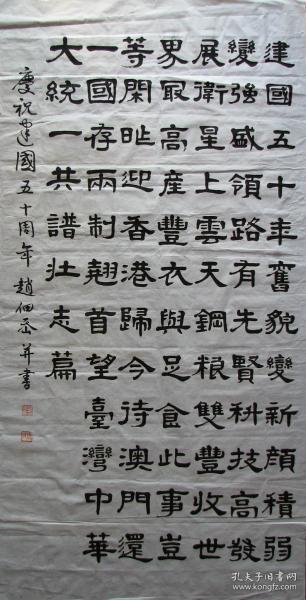 建國五十年舊貌變新顏積弱
變強盛領路有先賢科技高發
展衛星上雲天鋼粮雙豐收世
界最高產豐衣與足食此事豈
等閑昨迎香港歸今待澳門還
一國存兩制翹首望臺灣中華
大統一共譜壯志篇
慶祝建國五十周年 趙佃 并書
孔夫子旧书网